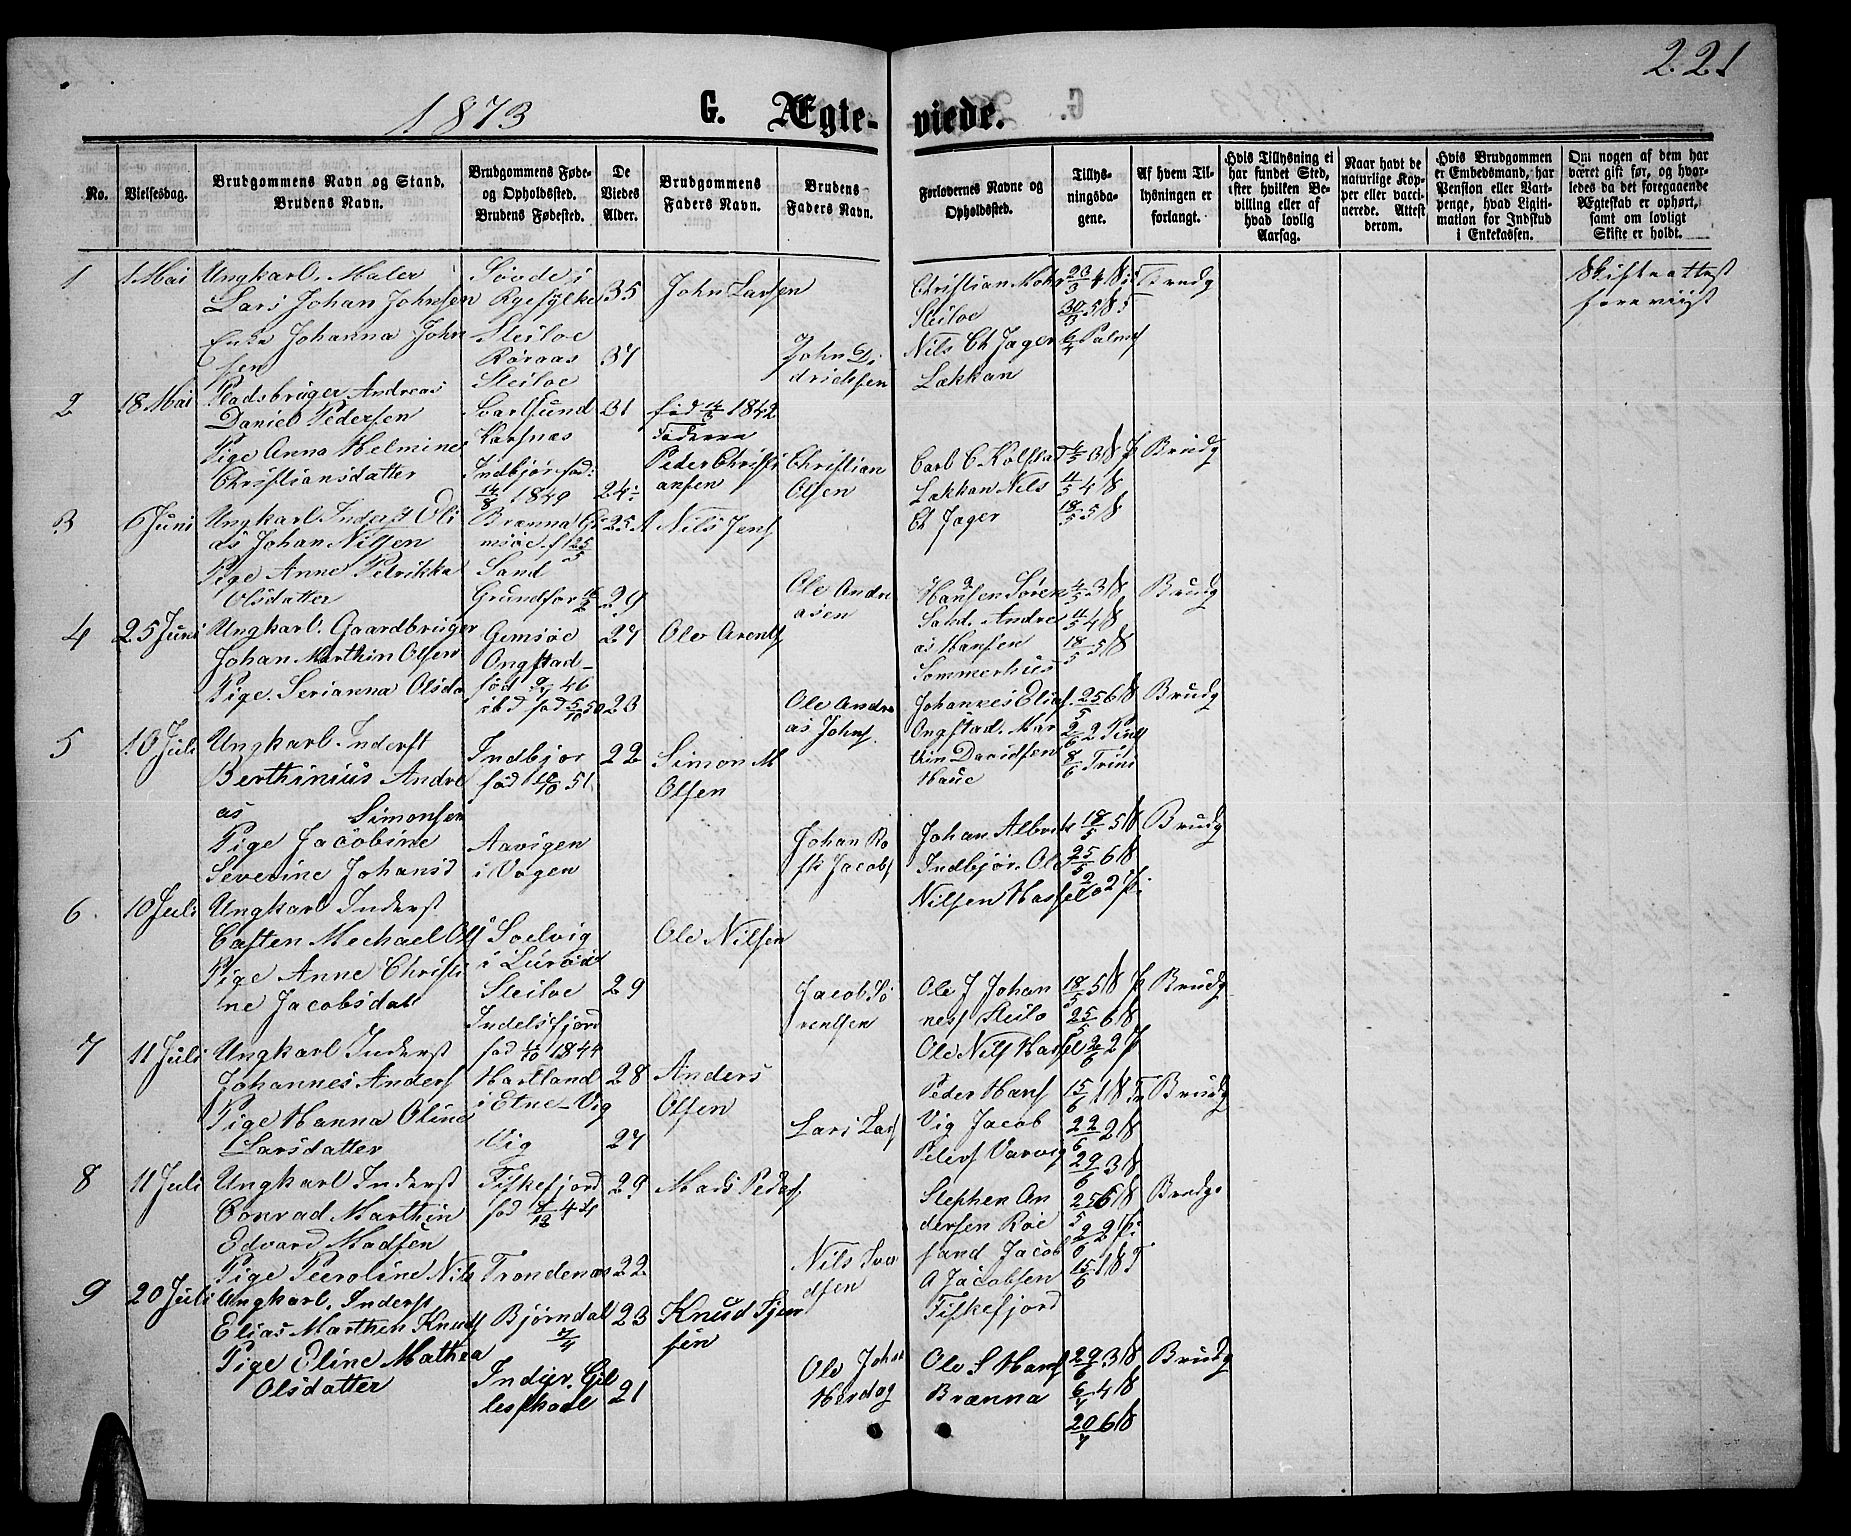 221
1873
G. Ægteviede.
No.
Vielsesdag.
Brudgommens Navn og Stand.
Brudens Navn.
Brudgommens Føde-
og Opholdssted.
Brudens Fødested.
De
Viedes
Alder.
Brudgommens
Faders Navn.
Brudens
Faders Navn.
Forlovernes Navne og
Opholdssted.
Tillys-
ningsda-
gene.
Af hvem Til-
lysningen er
forlangt.
Hvis Tillysning ei
har fundet Sted,
efter hvilken Be-
villing eller af
hvad lovlig
Aarsag.
Naar havt de
naturlige Kop-
per eller vacci-
nerede. Attest
derom.
Hvis Brudgommen
er Embedsmand, har
Pension eller Vart-
penge, hvad Ligiti-
mation for Indskud
i Enkekassen.
Om nogen af dem har
været gift før, og hvor-
ledes da det foregaaende
Ægteskab er ophørt,
samt om lovligt
Skifte er holdt.
1 1 Mai Ungkarl. Maler
Lars Johan Johnsen
Enke Johanna John
sen
Søvde i
Ryefylke 35
Steiloe
Røraas 37
Steiloe
John Larsen
John Di
drichsen
Christian Mohr
Steiloe
Nils Ch Jager
Løkkan
23/3 4 S i
30/3 5 S i
6/4 Palms
Brudg
Skifteattest
foreviist
2 18 Mai Pladsbruger Andreas
Daniel Pedersen
Pige Anna Helmine
Christiansdatter
Carlsund 31
Karsnæs
Indbjør fød:
14/8 1849 24
fød 14/3 1842
Faderen
Peder Christi
ansen
Christian
Olsen
Carl C. Kolstad
Løkkan Nils
Ch Jager
4/5 3 S p
11/5 4 S
18/5 5 S
Brudg
3 6 Juni Ungkarl Inderst Oli
as Johan Nilsen
Pige Anne Petrikka
Olsdatter
Brænna 25
Sand
Grundfor 29
Nils Jens
Ole Andre
asen
Hansen Søren
Sand. Andre
as Hansen
Sommerhus
4/5 3 S
11/5 4 S
18/5 5 S
Brudg
4 25 Juni Ungkarl. Gaardbruger
Johan Marthin Olsen
Pige. Serianna Olsda
Gemsøe 27
Ongstad
fød 9/7 46
ibd fød 5/10 50 23
Ole Arents
Ole Andre
as Johns.
Johannes Elias.
Ongstad. Mar
thin Davidsen
Haue
25/5 6 S
2/6 2 Pins
8/6 Trini
Brudg
5 10 Juli Ungkarl. Inderst
Berthinius Andre
as Simonsen
Pige Jacobine
Severine Johansd
Indbjør 22
fød 10/10 51
Aavigen
i Vogen
Simon M
Olsen
Johan Ro
sk Jacobs
Johan Albrik
Indbjør. Ole
Nilsen Hassel
18/5 5 S
25/5 6 S
2/6 2 Pi
Brudg
6 10 Juli Ungkarl Inderst
Casten Mechael Ols
Pige Anne Christi
ne Jacobsdat
Soelvig
i Lurøe
Steiloe 29
Indelsfjord
Ole Nilsen
Jacob Sø
rensen
Ole J Johan
nes Steilo
Ole Nils Hassel
18/5 5 S p
25/5 6 S
2/6 2 P
Brudg
7 11 Juli Ungkarl Inderst
Johannes Anders
Pige Hanna Oline
Larsdatter
fød 1/10 1844
Hartland 28
i Etne Vig
Vig 27
Anders
Olsen
Lars Lars
Peder Hans
Vig Jacob
Peders Varvig
15/6 1 S Tr
22/6 2 S
29/6 3 S
Brudg
8 11 Juli Ungkarl Inderst
Conrad Marthin
Edvard Madsen
Pige Peeroline Nils
Fiskefjord 29
fød 4/12 44
Trondenæs 22
Mads Peders
Nils Sve
dsen
Stephen An
dersen Roe
sand Jacob
A Jacobsen
Fiskefjord
25/5 6 S
2/6 2 Pi
15/6 1 S T
Brudg
9 20 Juli Ungkarl. Inderst
Elias Marthin Knuds
Pige Eline Mathea
Olsdatter
Bjørndal 23
7/4
Indyr. Gil
leskaal 21
Knud Tjen
sen
Ole Johns
Herdag
Ole S Hans
Brænna
29/6 3 S
6/7 4 S
20/7 6 S
Brudg